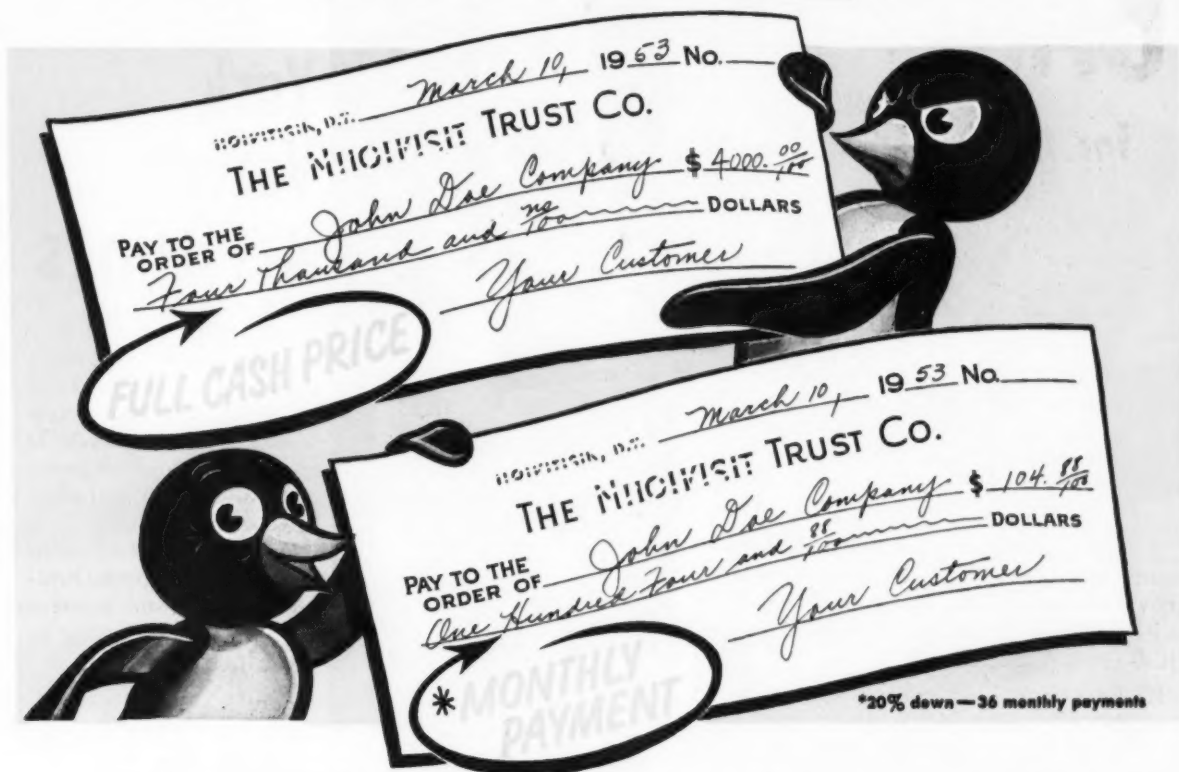 March 10, 1953 No.
THE TRUST CO.
PAY TO THE ORDER OF John Doe Company $ 4000. 00/100
Four Thousand and no/100 DOLLARS
Your Customer
FULL CASH PRICE
March 10, 1953 No.
THE TRUST CO.
PAY TO THE ORDER OF John Doe Company $ 104. 88/100
One Hundred Four and 88/100 DOLLARS
Your Customer
*MONTHLY
PAYMENT
*20% down—36 monthly payments